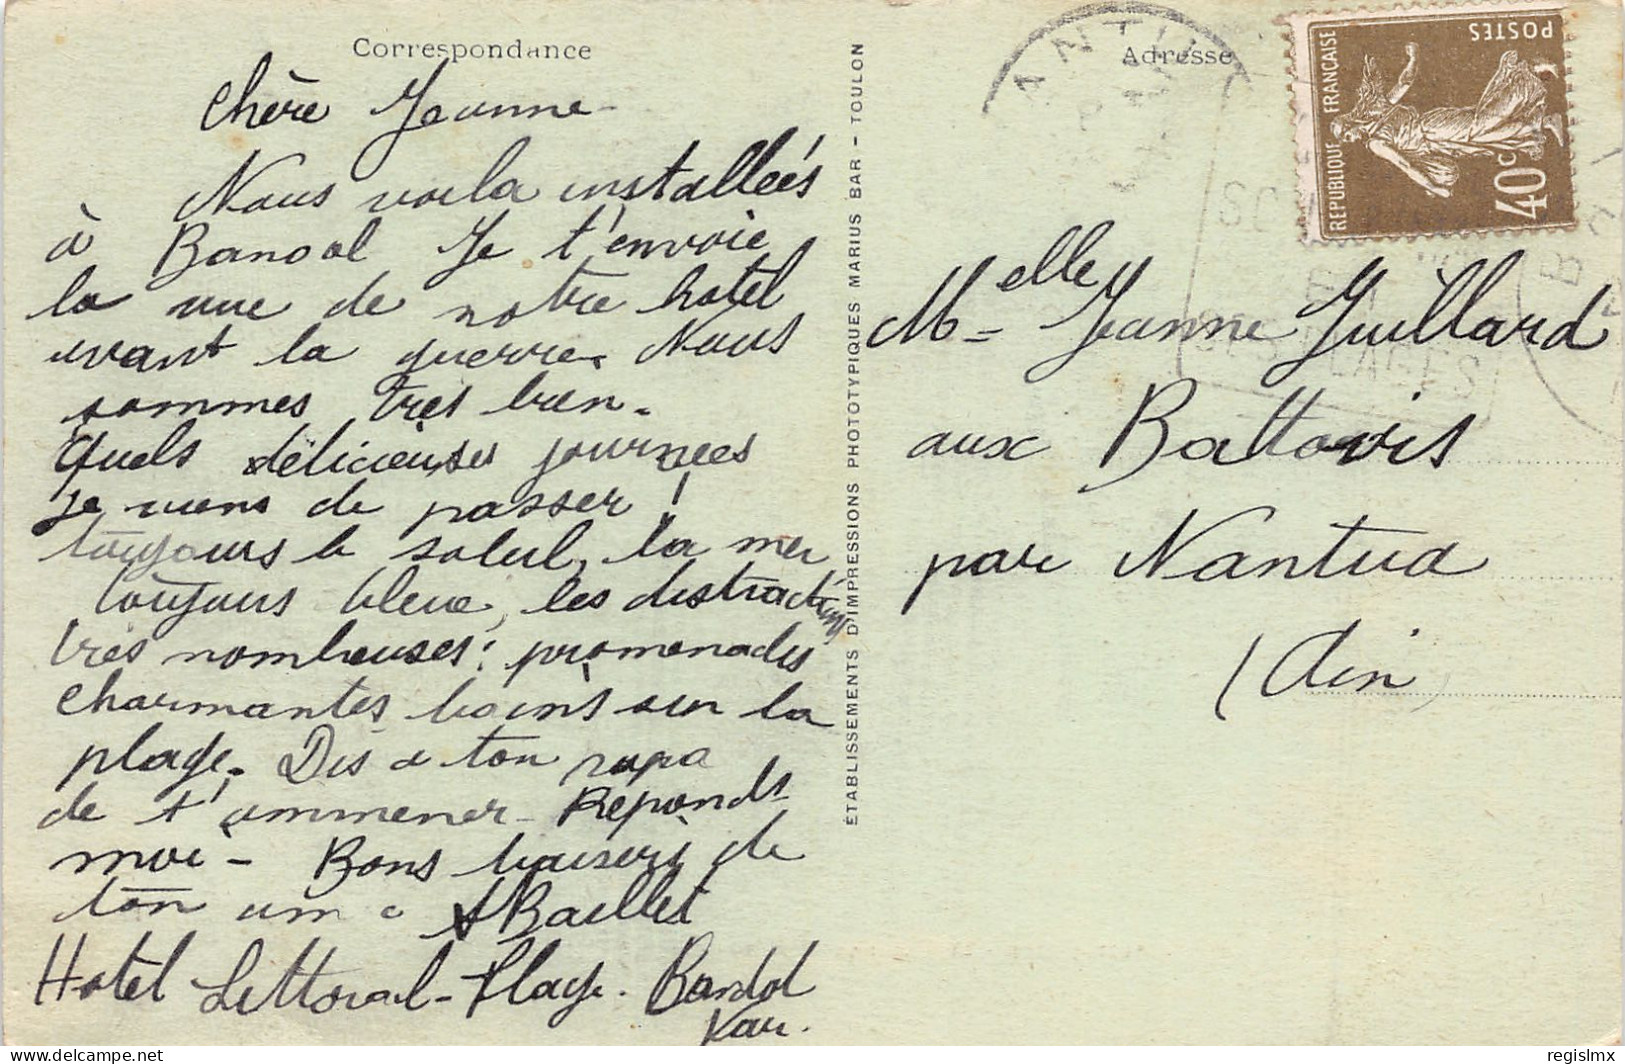 Correspondance
Chère Jeanne -
Nous voila installées
à Bandol Je t'envoie
la vue de notre hotel
avant la guerre. Nous
sommes très bien.
Quels délicieuses journées
je viens de passer !
toujours le soleil, la mer
toujours bleue, les distractions
très nombreuses : promenades
charmantes bains sur la
plage. Dis a ton papa
de t'ammener - Réponds
moi - Bons baisers de
ton ami
Baillet
Hotel Littoral-Plage. Bandol
Var.
ÉTABLISSEMENTS D'IMPRESSIONS PHOTOTYPIQUES MARIUS BAR - TOULON
Adresse
POSTES
RÉPUBLIQUE FRANÇAISE
40c
Melle Jeanne Juillard
aux Battoirs
par Nantua
(Ain)
delcampe.net
regislmx